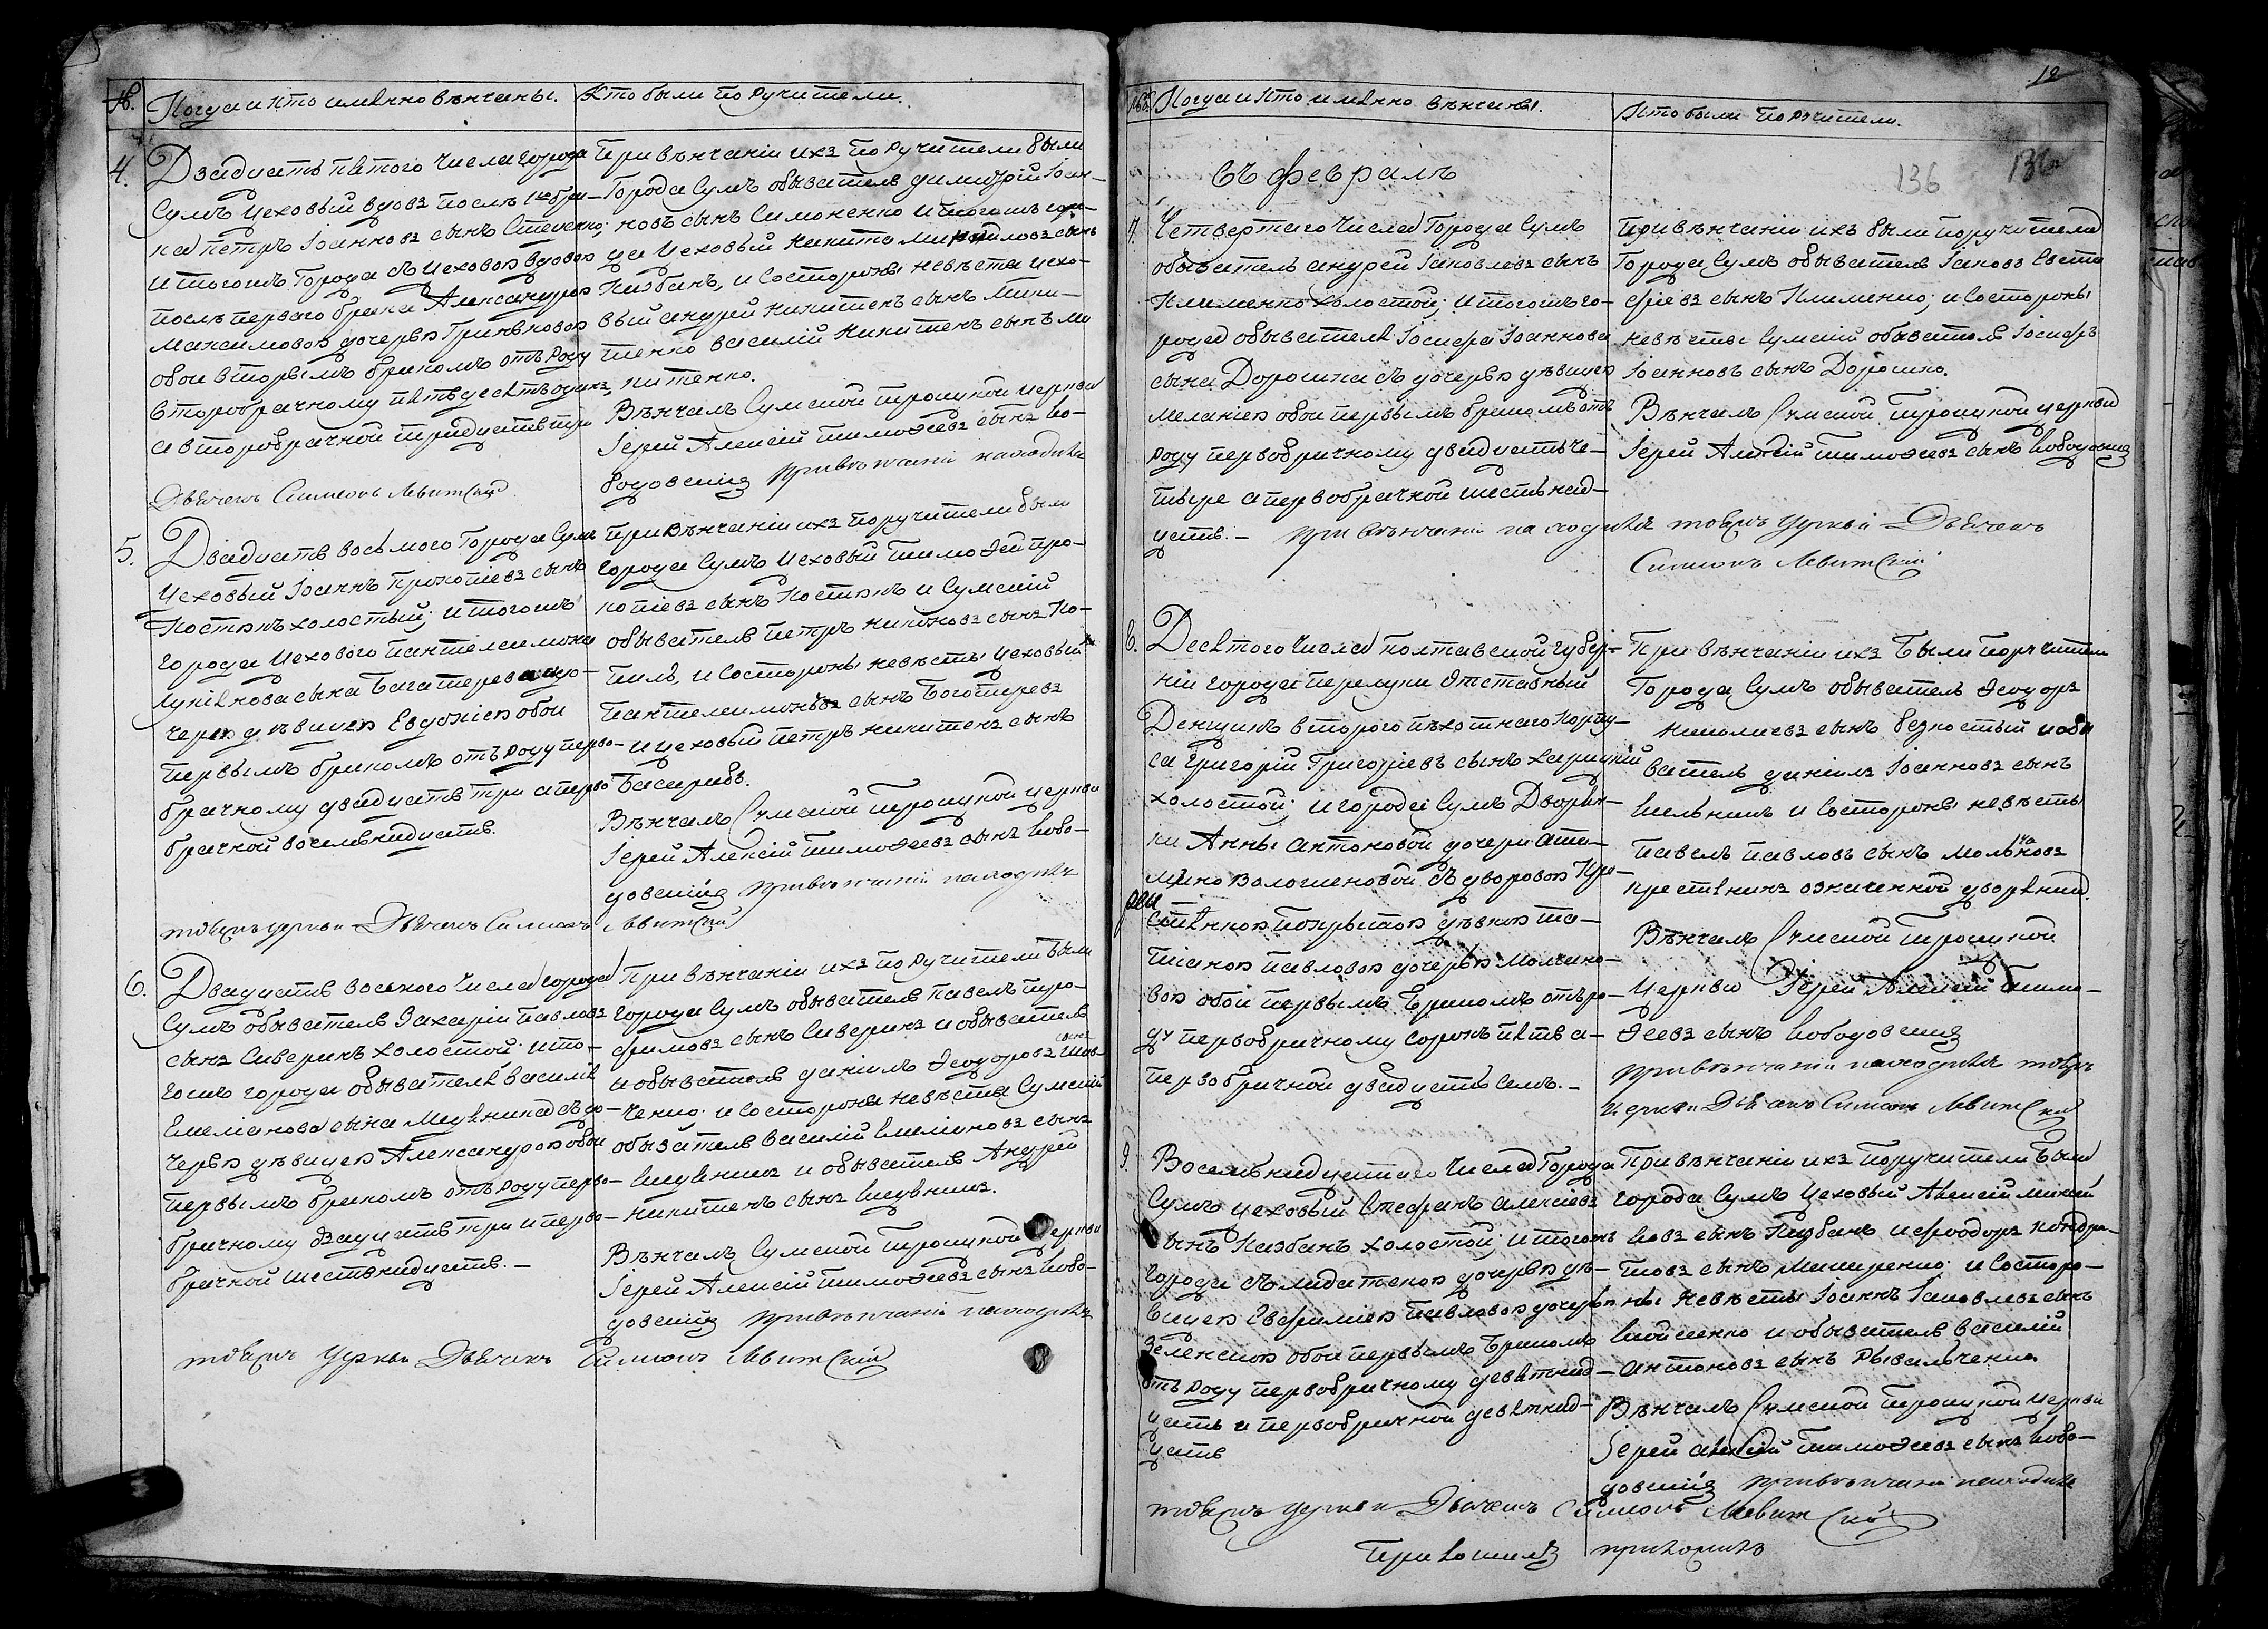 №. Когда и кто именно вѣнчаны.
Кто были поручители.
4. Двадцать пятого числа города
Сумъ цеховый вдовъ послѣ 1го бра-
ка петръ Іоанновъ сынъ Стеценко;
и тогожъ города съ цеховою вдовою
послѣ перваго брака Александрою
Максимовою дочерью Гриньковою
обои вторымъ бракомъ отъ роду
второбрачному пятьдесятъ одинъ,
а второбрачной тридцать три
Дьячекъ Симеонъ Левитский
При вѣнчаніи ихъ поручители были
города Сумъ обыватель димитрій Іоан-
новъ сынъ Симоненко и тогожъ горо-
да цеховый никита Михайловъ сынъ
Казбанъ, и состороны невѣсты цехо-
вый андрей никитинъ сынъ Мики-
тенко василій никитинъ сынъ ми
китенко.
Вѣнчалъ Сумской троицкой церкви
Іерей Алексій тимоѳеевъ сынъ Сло-
бодовскій при вѣнчаніи находился
5. Двадцать восьмого города Сумъ
цеховый Іоаннъ прокопіевъ сынъ
Костюкъ холостый; и тогожъ
города цехового пантелеимона
Лукьянова сына Багатерева до-
черью дѣвицею Евдокіею обои
первымъ бракомъ отъ роду перво-
брачному двадцать три а перво
брачной восемьнадцать.
тоеяжъ церкви Дьячекъ Симеонъ Левитский
При вѣнчаніи ихъ поручители были
города Сумъ цеховый тимоѳей про-
копіевъ сынъ Костюкъ и Сумскій
обыватель петръ никоновъ сынъ Ко-
пиль, и состороны невѣсты цеховый
пантелеимонъ сынъ Богатиревъ
и цеховый петръ никитинъ сынъ
Басарабъ.
Вѣнчалъ Сумской троицкой церкви
Іерей Алексій тимоѳеевъ сынъ Слобо-
довскій при вѣнчаніи находился
6. Двадцать восьмого числа города
Сумъ обыватель Захарій павловъ
сынъ Сиверинъ холостой; и то-
гожъ города обывателя василія
Емеліанова сына Медяника съ до-
черью дѣвицею Александрою обои
первымъ бракомъ отъ роду перво-
брачному двадцать три и перво-
брачной шестьнадцать.-
тоеяжъ церкви Дьячекъ Симеонъ Левитскій
При вѣнчаніи ихъ поручители были
города Сумъ обыватель павелъ тро-
фимовъ сынъ Сиверинъ и обыватель
и обыватель даніилъ Ѳеодоровъ сынъ Шев-
ченко; и состороны невѣсты Сумскій
обыватель василій Емеліановъ сынъ
Медяникъ и обыватель Андрей
никитинъ сынъ Медяникъ.
Вѣнчалъ Сумской троицкой церкви
Іерей Алексій тимоѳеевъ сынъ Слобо-
довскій при вѣнчаніи находился
12
Когда и кто именно вѣнчаны.
Кто были поручители.
136 136
въ февралѣ
7. Четвертаго числа города Сумъ
обыватель андрей Іаковлевъ сынъ
Клименко холостой; и тогожъ го-
рода обывателя Іосифа Іоаннова
сына Дорошка съ дочерью дѣвицею
меланіею обои первымъ бракомъ отъ
роду первобрачному двадцать че-
тыре а первобрачной шестьнад-
цать.- при вѣнчаніи находился тоеяжъ церкви Дьячекъ
Симеонъ Левитскій
При вѣнчаніи ихъ были поручители
города Сумъ обыватель Іаковъ Евста
фіевъ сынъ Клименко; и состороны
невѣсты Сумскій обыватель Іосифъ
Іоанновъ сынъ Дорошко.
Вѣнчалъ Сумской троицкой церкви
Іерей Алексій тимоѳеевъ сынъ Слободовскій
8. Десятого числа полтавской губер-
ніи города перелуки отставный
Денщикъ второго пѣхотнаго корпу-
са Григорій Григоріевъ сынъ харицкій
холостой; и города Сумъ Дворян-
ки Анны антоновой дочери
съ дворовою Кре-
стьянкою дѣвкою та-
тіаною павловою дочерью Молчано-
вою обои первымъ бракомъ отъ ро-
ду первобрачному сорокъ пять а-
первобрачной двадцать семь.-
При вѣнчаніи ихъ были поручители
города Сумъ обыватель Ѳеодоръ
николаевъ сынъ безкостый и обы
ватель даніилъ Іоанновъ сынъ
и состороны невѣсты
павелъ павловъ сынъ Молчановъ
крестянинъ означенной дворянки.
Вѣнчалъ Сумской троицкой
церкви Іерей Алексій тимо-
ѳеевъ сынъ Слободовскій
при вѣнчаніи находился тоеяжъ
церкви Дьячекъ Симеонъ Левитскій
9. Восемьнадцатаго числа города
Сумъ цеховый Стефанъ алексіевъ
сынъ Казбанъ холостой; и тогожъ
города съ дочерью дѣ-
вицею Евфиміею павловою дочерью
Зеленскою обои первымъ бракомъ
отъ роду первобрачному девятнад-
цать и первобрачной девятнад-
цать
При вѣнчаніи ихъ поручители были
города Сумъ цеховый Алексій михай
ловъ сынъ Казбанъ и феодоръ кондра-
товъ сынъ и состоро-
ны невѣсты Іоаннъ Іаковлевъ сынъ
и обыватель василій
антоновъ сынъ
Вѣнчалъ Сумской троицкой церкви
Іерей алексій тимоѳеевъ сынъ Слобо-
довскій при вѣнчаніи находился
тоеяжъ церкви Дьячекъ Симеонъ Левитскій